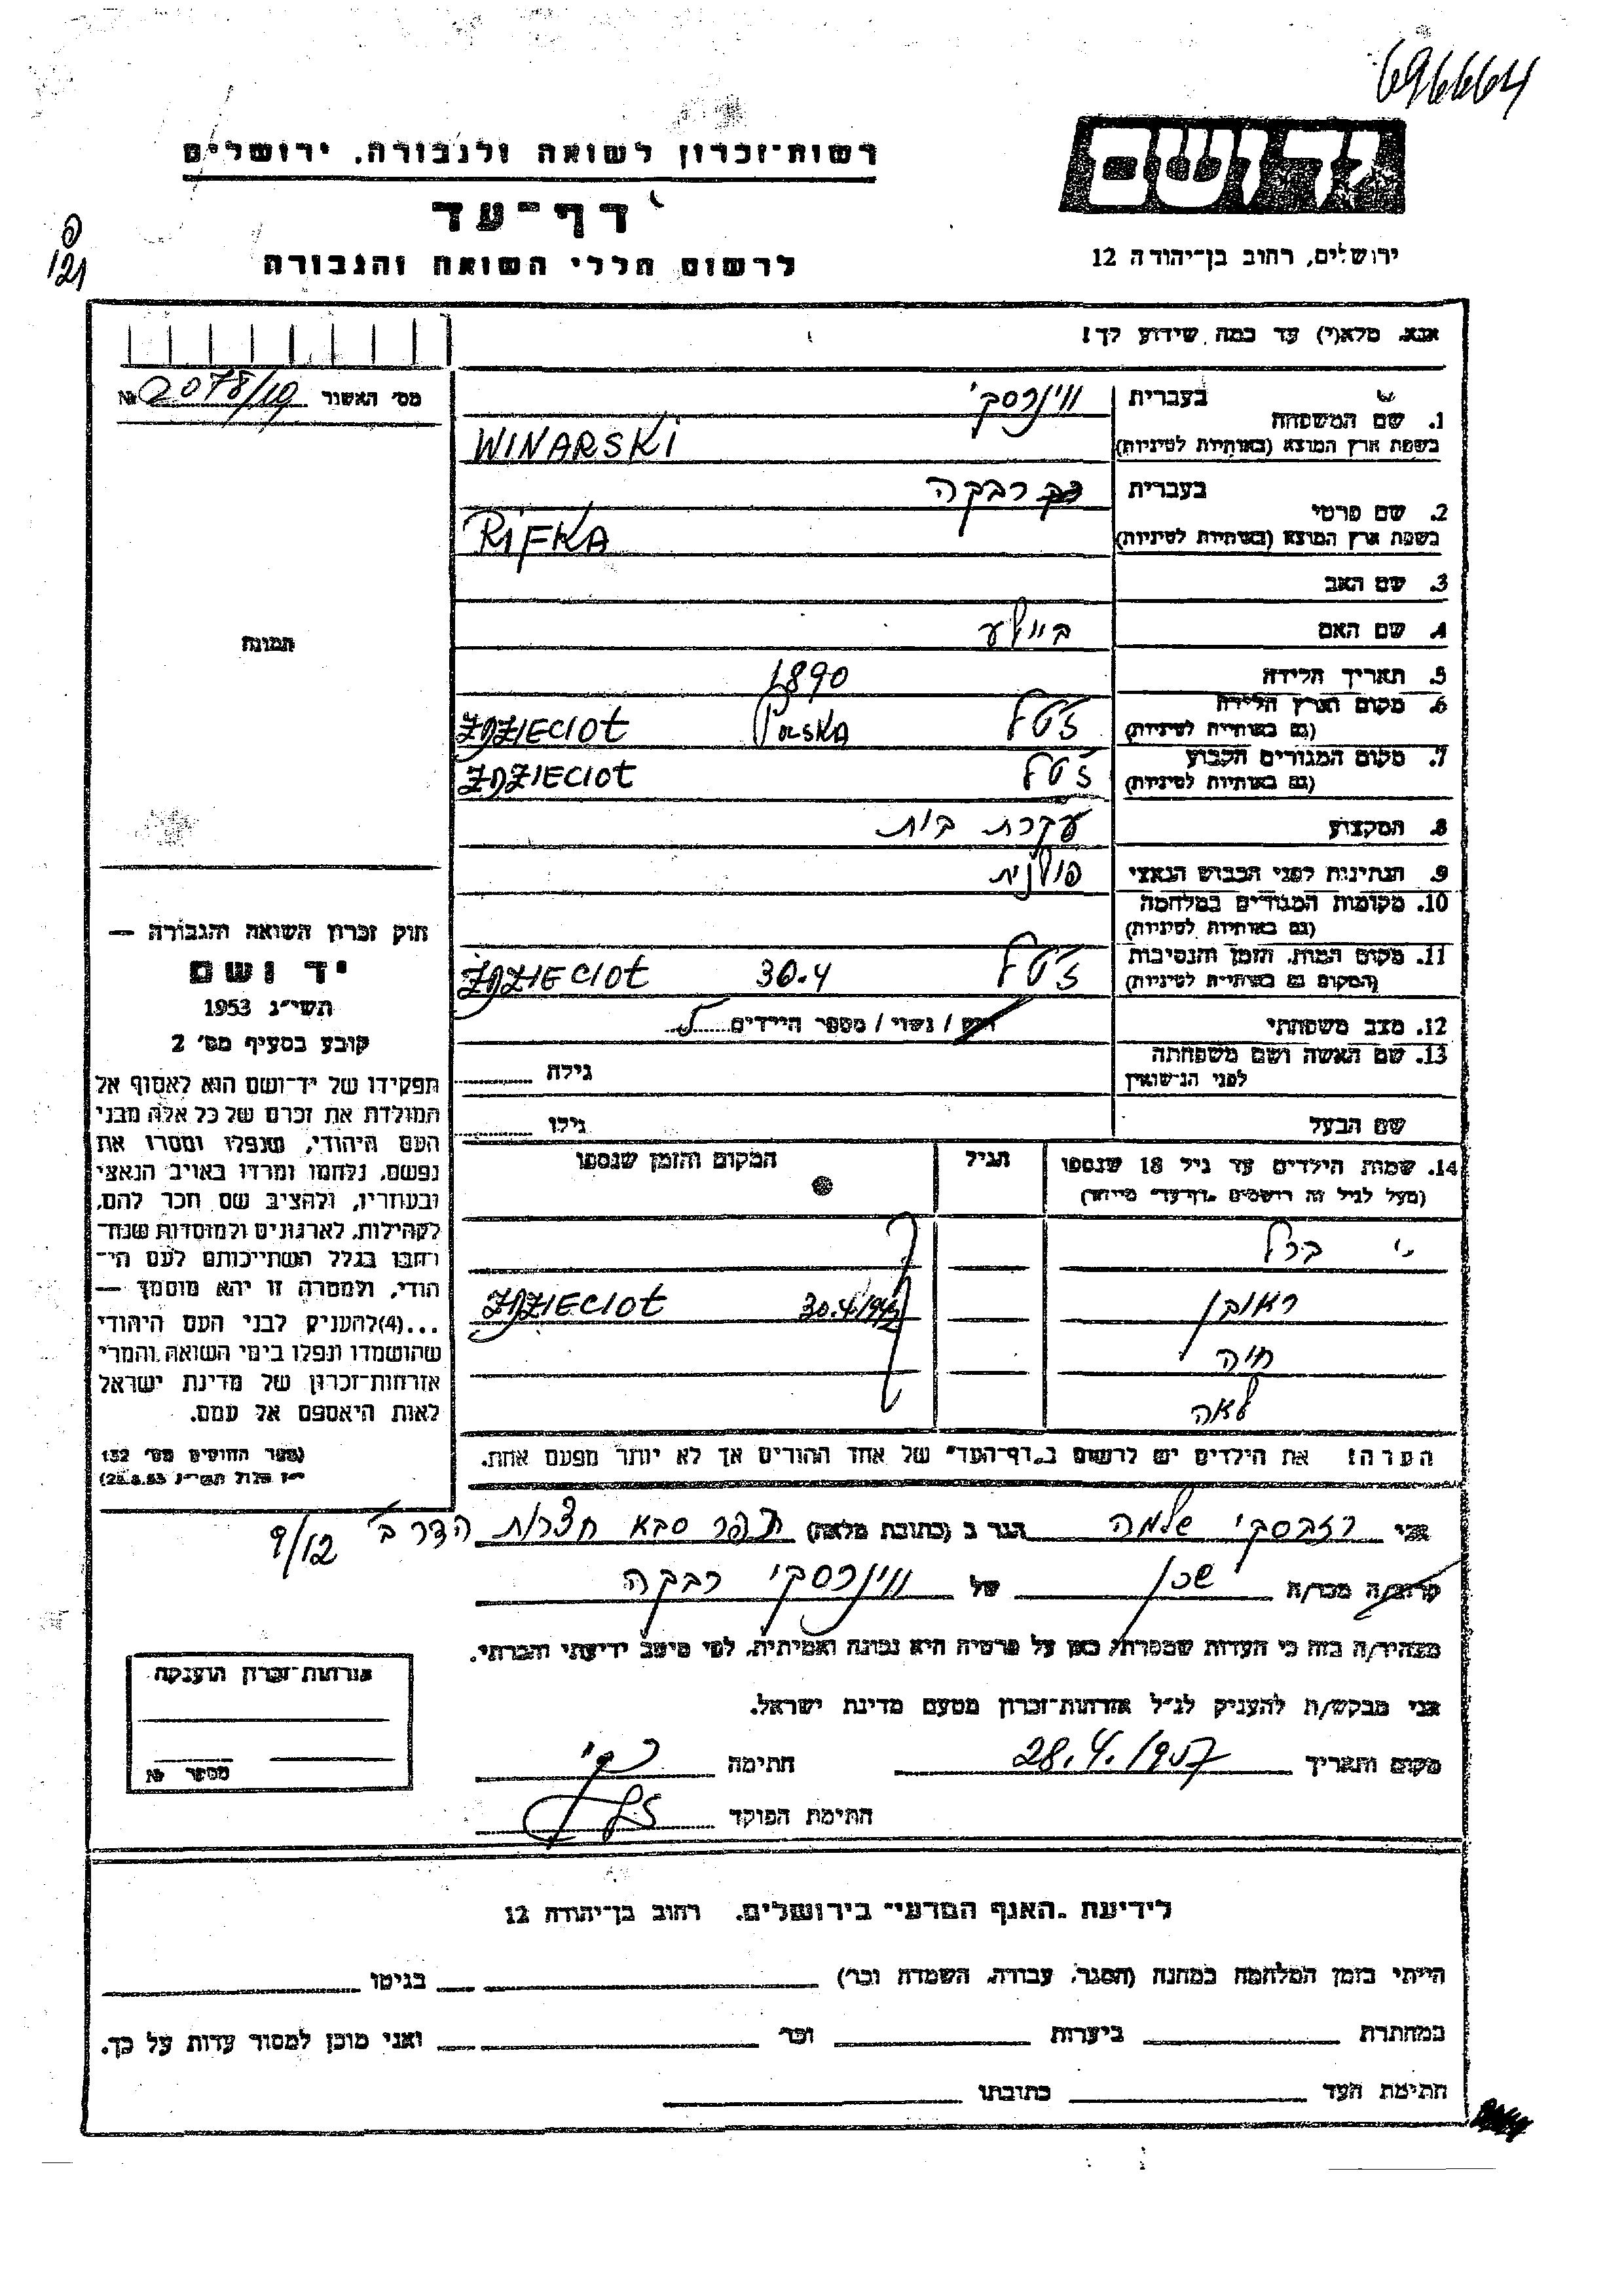 696664
יד ושם
רשות־זכרון לשואה ולגבורה, ירושלים
דף־עד
לרשום חללי השואה והגבורה
ירושלים, רחוב בן־יהודה 12
121
אנא, מלא(י) עד כמה שידוע לך!
מס' האשור № 2078/19
1. שם המשפחה
בעברית ווינרסקי
בשפת ארץ המוצא (באותיות לטיניות) WINARSKI
2. שם פרטי
בעברית רבקה
בשפת ארץ המוצא (באותיות לטיניות) RIFKA
3. שם האב
4. שם האם ביילע
תמונה
5. תאריך הלידה 1890
6. מקום וארץ הלידה (גם באותיות לטיניות) ז'טל Polska ZDZIECIOT
7. מקום המגורים הקבוע (גם באותיות לטיניות) ז'טל ZDZIECIOT
8. המקצוע עקרת בית
9. הנתינות לפני הכבוש הנאצי פולנית
10. מקומות המגורים במלחמה (גם באותיות לטיניות)
11. מקום המות, הזמן והנסיבות (המקום גם באותיות לטיניות) ז'טל 30.4 ZDZIECIOT
12. מצב משפחתי רווק / נשוי / מספר הילדים
13. שם האשה ושם משפחתה לפני הנישואין גילה
שם הבעל גילו
14. שמות הילדים עד גיל 18 שנספו
(מעל לגיל זה רושמים "דף־עד" מיוחד)
הגיל
המקום והזמן שנספו
ברל
ראובן 30.4.1942 ZDZIECIOT
חיה
לאה
הערה: את הילדים יש לרשום ב"דף־העד" של אחד ההורים אך לא יותר מפעם אחת.
חוק זכרון השואה והגבורה —
יד ושם
תשי"ג 1953
קובע בסעיף מס' 2
תפקידו של יד־ושם הוא לאסוף אל
המולדת את זכרם של כל אלה מבני
העם היהודי, שנפלו ומסרו את
נפשם, נלחמו ומרדו באויב הנאצי
ובעוזריו, ולהציב שם וזכר להם,
לקהילות, לארגונים ולמוסדות שנח־
רבו בגלל השתייכותם לעם הי־
הודי, ולמטרה זו יהא מוסמך —
...(4)להעניק לבני העם היהודי
שהושמדו ונפלו בימי השואה והמרי
אזרחות־זכרון של מדינת ישראל
לאות היאספם אל עמם.
(ספר החוקים מס' 132
י"ז אלול תשי"ג 28.8.53)
אני רזבסקי שלמה הגר ב (כתובת מלאה) כפר סבא חצרות הדר ב' 9/12
קרוב/ה מכר/ה שכן של ווינרסקי רבקה
מצהיר/ה בזה כי העדות שמסרתי כאן על פרטיה היא נכונה ואמיתית, לפי מיטב ידיעתי והכרתי.
אני מבקש/ת להעניק לנ"ל אזרחות־זכרון מטעם מדינת ישראל.
מקום ותאריך 28.4.1957 חתימה
חתימת הפוקד
אזרחות־זכרון הוענקה
מספר №
לידיעת "האגף המדעי" בירושלים, רחוב בן־יהודה 12
הייתי בזמן המלחמה במחנה (הסגר, עבודה, השמדה וכו') בגיטו
במחתרת ביערות וכו' ואני מוכן למסור עדות על כך.
חתימת העד כתובתו